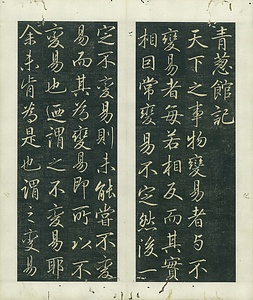 青蔥館記
天下之事物變易者與不
變易者每若相反而其實
相因常變易不定然後
定不變易則未能嘗不變
易而其為變易即所以不
變易也迺謂之不變易耶
余未肯為是也謂之變易